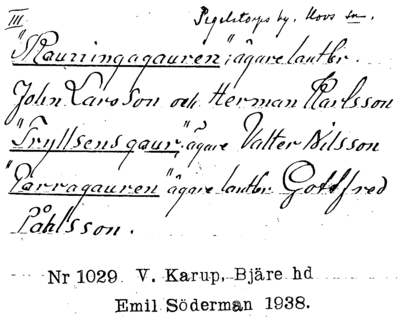 III Pegelstorps by. Hovs sn.
"Skaurringagauren", ägare lantbr.
John Larsson och Herman Karlsson
"Tryllsens gaur", ägare Valter Nilsson
"Pärragauren" ägare lantbr. Gottfred
Påhlsson.
Nr 1029 V. Karup, Bjäre hd
Emil Söderman 1938.